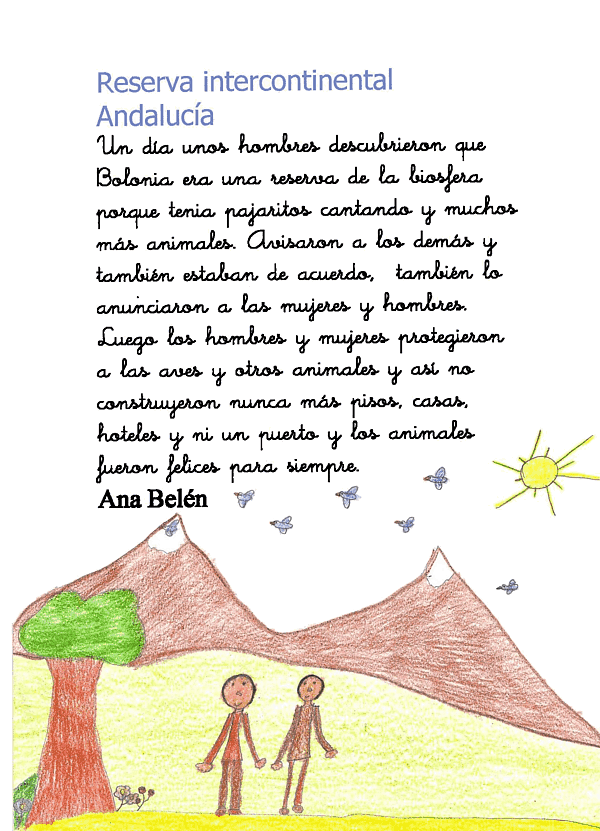 Reserva intercontinental
Andalucía
Un día unos hombres descubrieron que
Bolonia era una reserva de la biosfera
porque tenia pajaritos cantando y muchos
más animales. Avisaron a los demás y
también estaban de acuerdo, también lo
anunciaron a las mujeres y hombres.
Luego los hombres y mujeres protegieron
a las aves y otros animales y así no
construyeron nunca más pisos, casas,
hoteles y ni un puerto y los animales
fueron felices para siempre.
Ana Belén